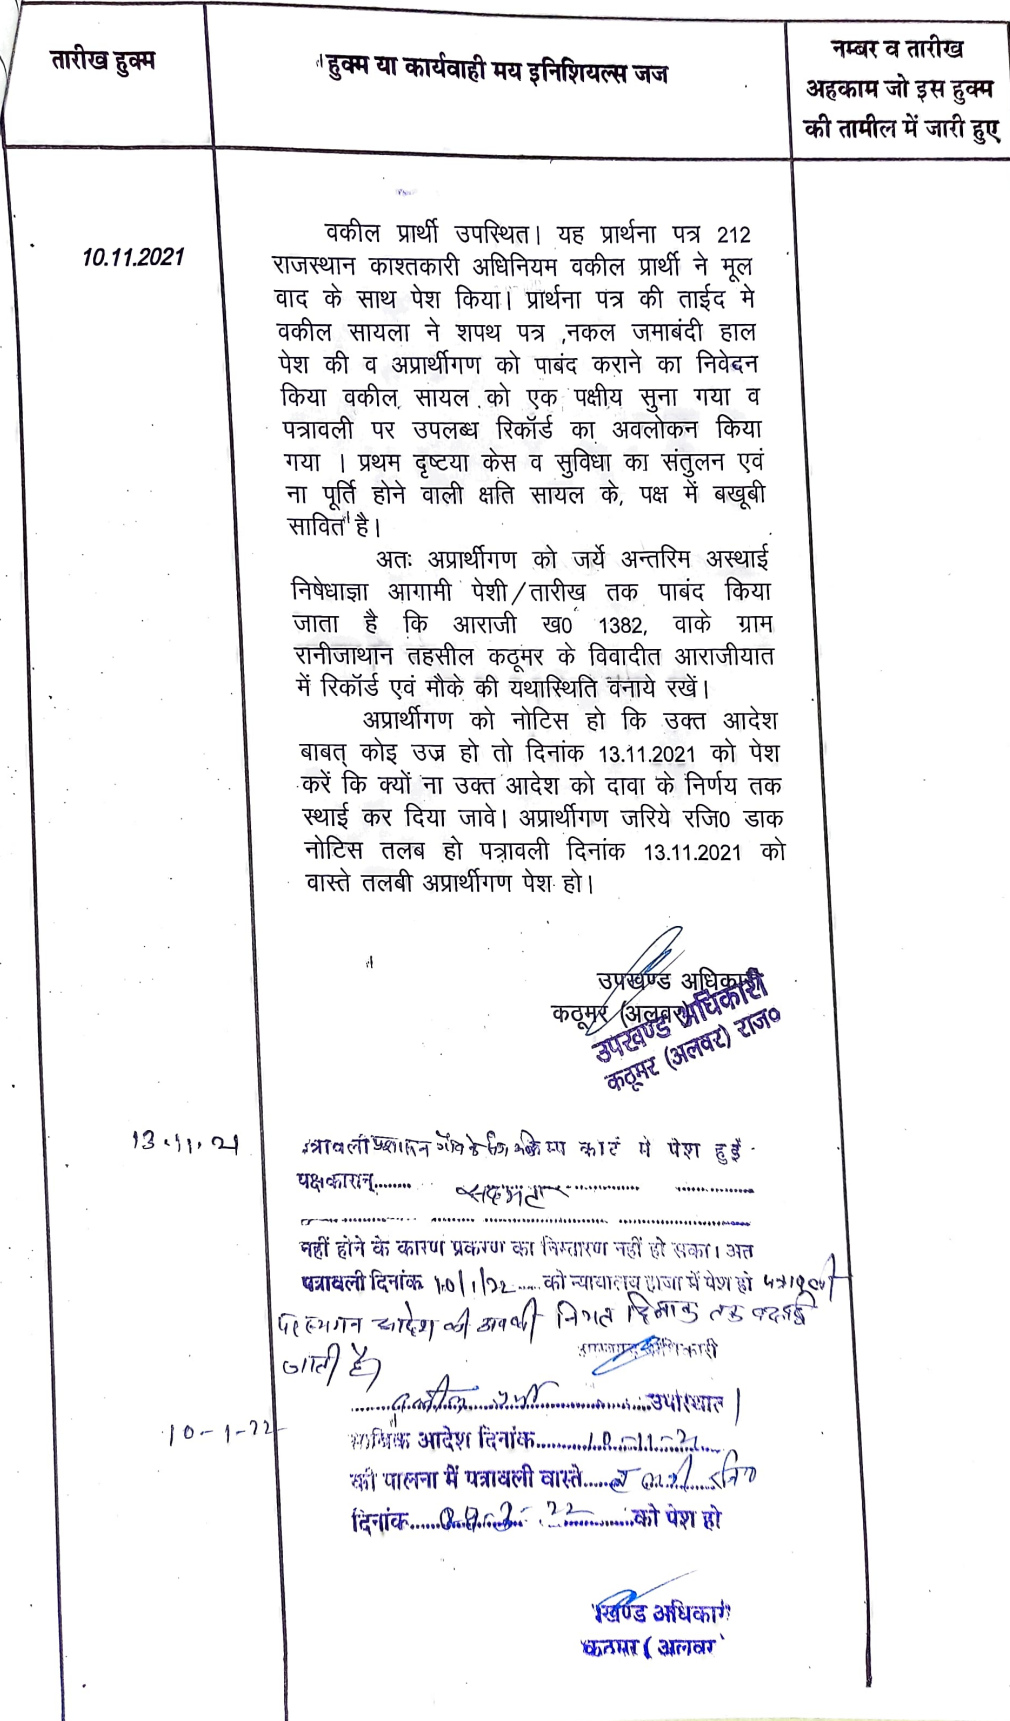 तारीख हुक्म
हुक्म या कार्यवाही मय इनिशियल्स जज
नम्बर व तारीख
अहकाम जो इस हुक्म
की तामील में जारी हुए
10.11.2021
वकील प्रार्थी उपस्थित। यह प्रार्थना पत्र 212
राजस्थान काश्तकारी अधिनियम वकील प्रार्थी ने मूल
वाद के साथ पेश किया। प्रार्थना पत्र की ताईद मे
वकील सायला ने शपथ पत्र ,नकल जमाबंदी हाल
पेश की व अप्रार्थीगण को पाबंद कराने का निवेदन
किया वकील सायल को एक पक्षीय सुना गया व
पत्रावली पर उपलब्ध रिकॉर्ड का अवलोकन किया
गया । प्रथम दृष्टया केस व सुविधा का संतुलन एवं
ना पूर्ति होने वाली क्षति सायल के, पक्ष में बखूबी
सावित है।
अतः अप्रार्थीगण को जर्ये अन्तरिम अस्थाई
निषेधाज्ञा आगामी पेशी/तारीख तक पाबंद किया
जाता है कि आराजी ख0 1382, वाके ग्राम
रानीजाथान तहसील कठूमर के विवादीत आराजीयात
में रिकॉर्ड एवं मौके की यथास्थिति वनाये रखें।
अप्रार्थीगण को नोटिस हो कि उक्त आदेश
बाबत् कोइ उज्र हो तो दिनांक 13.11.2021 को पेश
करें कि क्यों ना उक्त आदेश को दावा के निर्णय तक
स्थाई कर दिया जावे। अप्रार्थीगण जरिये रजि0 डाक
नोटिस तलब हो पत्रावली दिनांक 13.11.2021 को
वास्ते तलबी अप्रार्थीगण पेश हो।
उपखण्ड अधिकारी
कठूमर (अलवर)
उपखण्ड अधिकारी
कठूमर (अलवर) राज०
13.11.21
में पेश हुई
पक्षकारान्........
नहीं होने के कारण प्रकरण का निस्तारण नहीं हो सका। अत
पत्रावली दिनांक 10/1/22 को न्यायालय में पेश हो पत्रावली
आदेश की
जाती है
10-1-22
उपस्थित
आदेश दिनांक 10-11-21
की पालना में पत्रावली वास्ते
दिनांक को पेश हो
खण्ड अधिकारी
कठूमर (अलवर